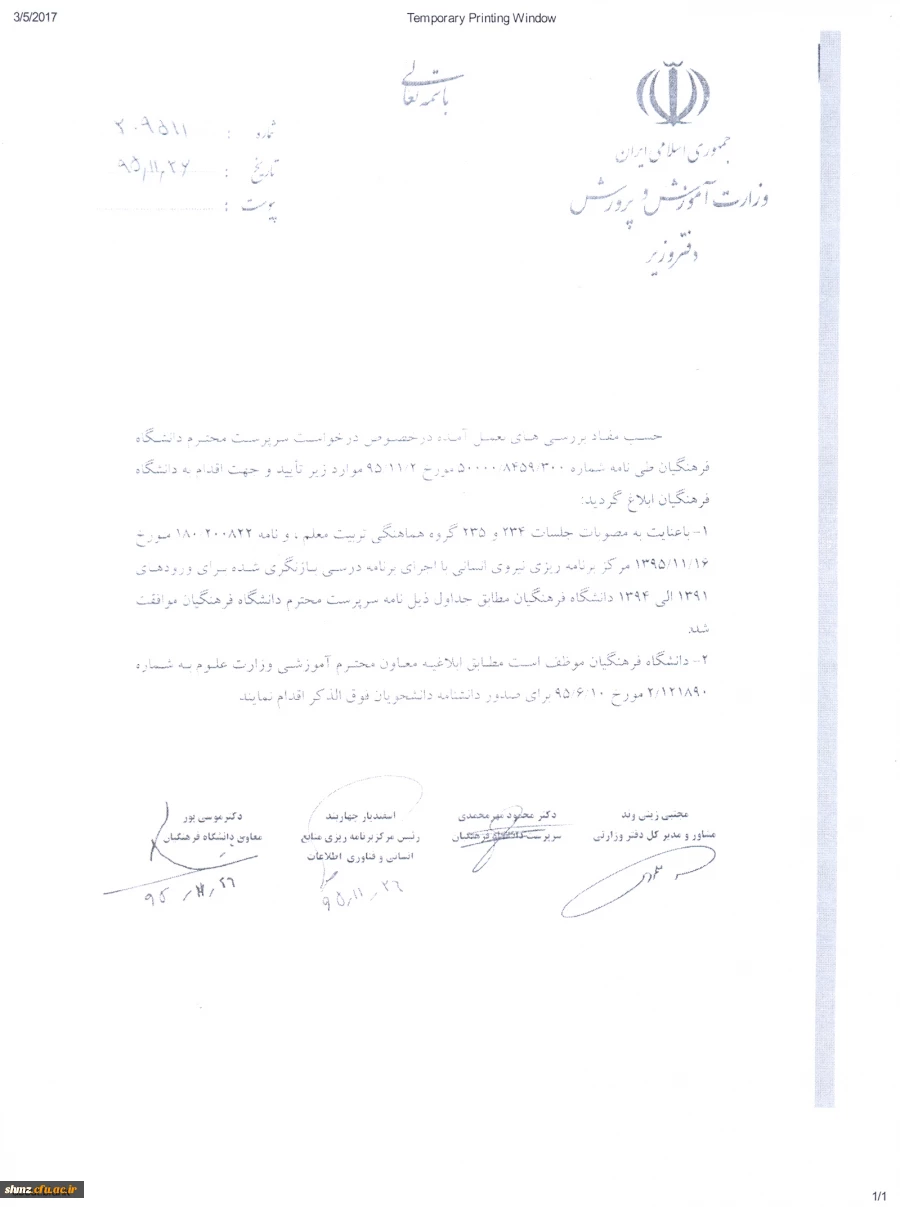 3/5/2017
Temporary Printing Window
باسمه تعالی
جمهوری اسلامی ایران
وزارت آموزش و پرورش
دفتر وزیر
شماره : ۲۰۹۵۱۱
تاریخ : ۹۵,۱۱,۲۶
پیوست :
حسب مفاد بررسی های بعمل آمده درخصوص درخواست سرپرست محترم دانشگاه
فرهنگیان طی نامه شماره ۵۰۰۰۰/۸۴۵۹/۳۰۰ مورخ ۹۵/۱۱/۲ موارد زیر تأیید و جهت اقدام به دانشگاه
فرهنگیان ابلاغ گردید:
۱- باعنایت به مصوبات جلسات ۲۳۴ و ۲۳۵ گروه هماهنگی تربیت معلم ، و نامه ۱۸۰۲۰۰۸۲۲ مورخ
۱۳۹۵/۱۱/۱۶ مرکز برنامه ریزی نیروی انسانی با اجرای برنامه درسی بازنگری شده برای ورودهای
۱۳۹۱ الی ۱۳۹۴ دانشگاه فرهنگیان مطابق جداول ذیل نامه سرپرست محترم دانشگاه فرهنگیان موافقت
شد.
۲- دانشگاه فرهنگیان موظف است مطابق ابلاغیه معاون محترم آموزشی وزارت علوم به شماره
۲/۱۲۱۸۹۰ مورخ ۹۵/۶/۱۰ برای صدور دانشنامه دانشجویان فوق الذکر اقدام نمایند.
مجتبی زینی وند
مشاور و مدیر کل دفتر وزارتی
دکتر محمود مهرمحمدی
سرپرست دانشگاه فرهنگیان
اسفندیار چهاربند
رئیس مرکز برنامه ریزی منابع
انسانی و فناوری اطلاعات
۹۵,۱۱,۲۶
دکتر موسی پور
معاون دانشگاه فرهنگیان
۹۵,۱۱,۲۶
shmz.cfu.ac.ir
1/1